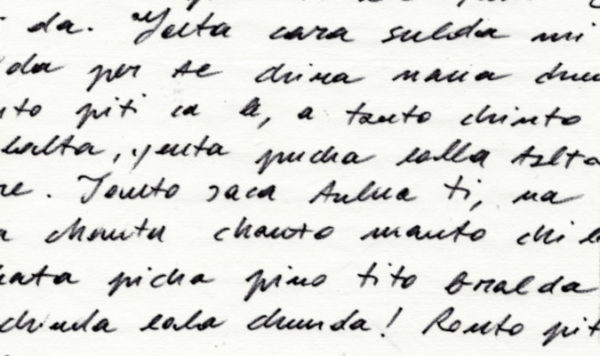 da. Yenta cara sulda mi
da per te china nana
piti ca le, a tanto chinto
balta, yenta pucha lalla talta
re. Tonto saca tulna ti, na
a chontu chanto manto chi
hata picha pino tito bralda
chinda lala chunda! Ronto pit